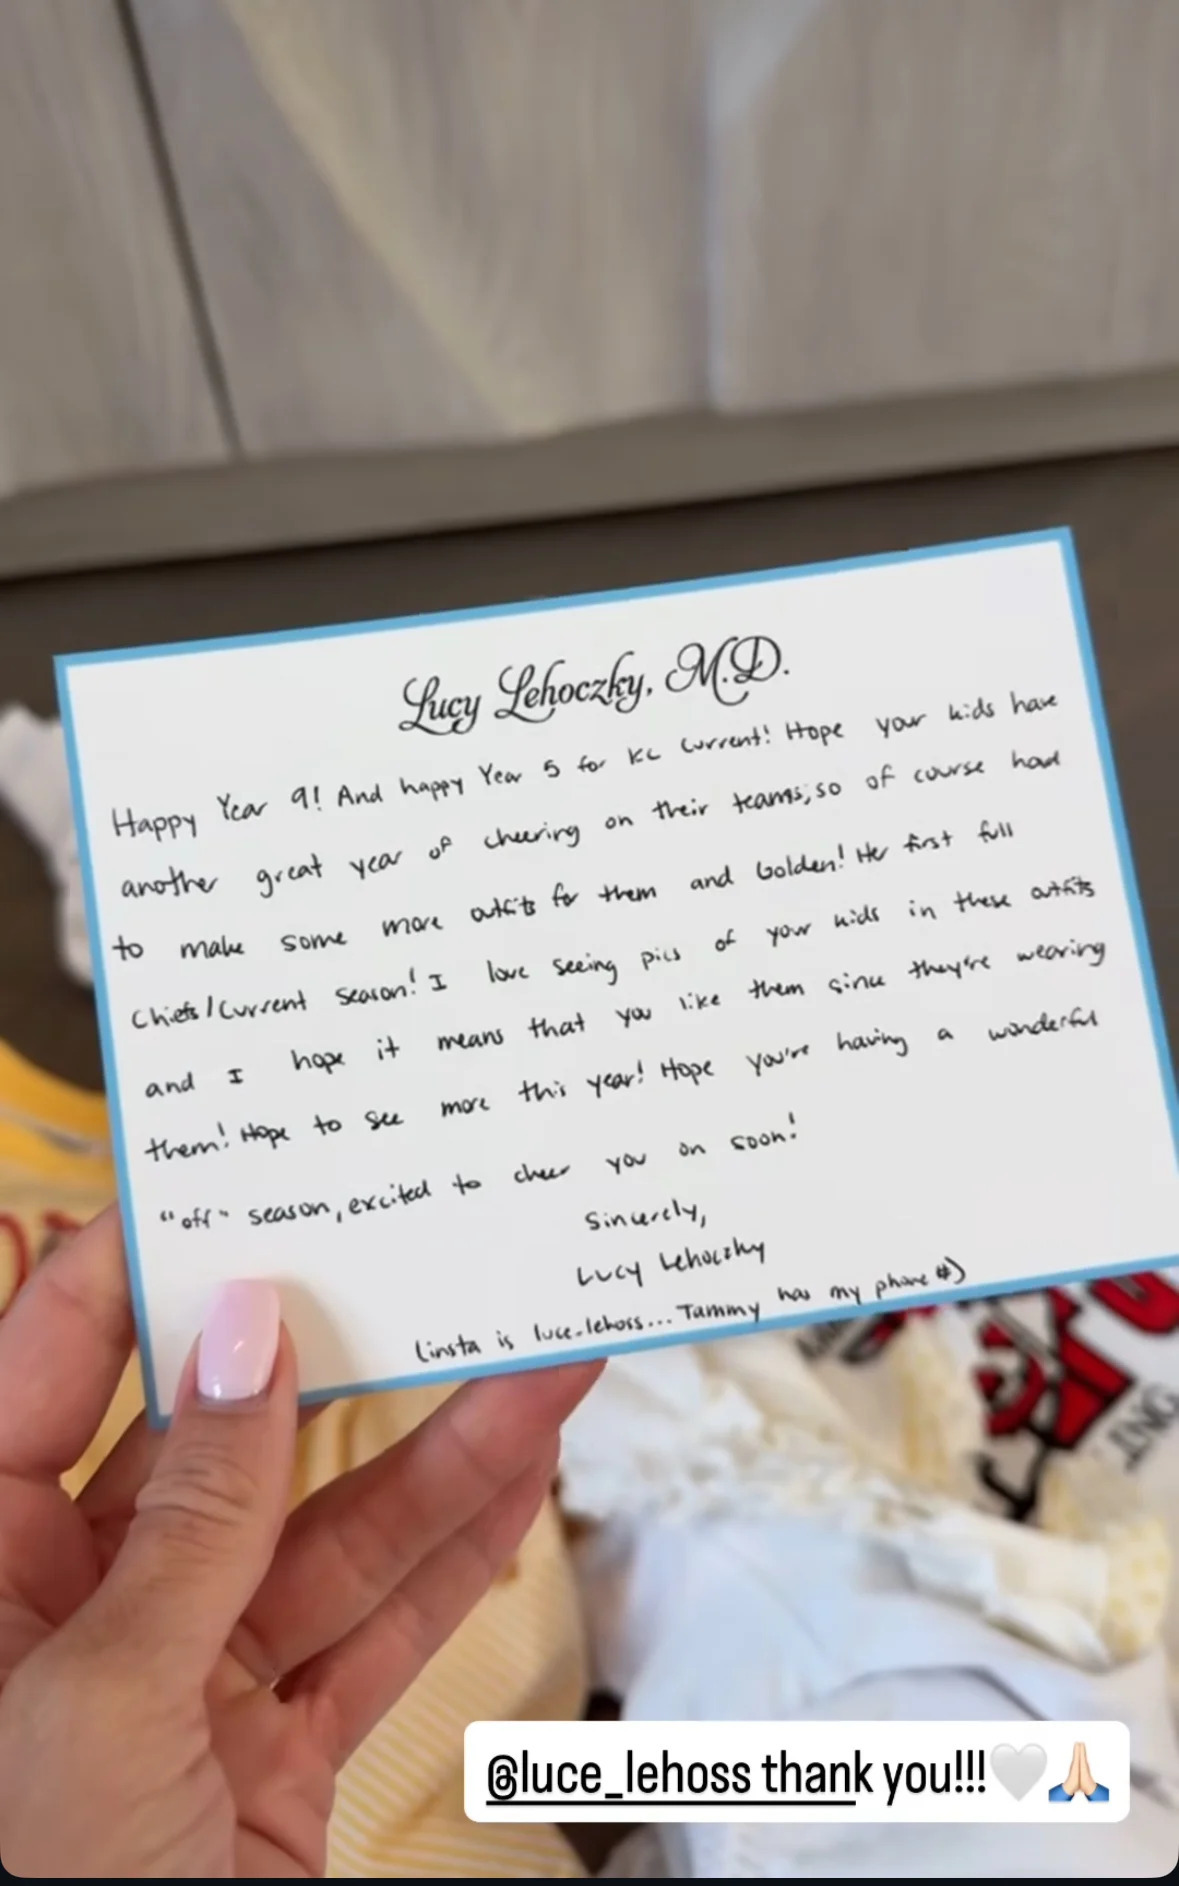 Lucy Lehoczky, M.D.
Happy Year 9! And happy Year 5 for KC Current! Hope your kids have
another great year of cheering on their teams, so of course had
to make some more outfits for them and Golden! Her first full
Chiefs/Current season! I love seeing pics of your kids in these outfits
and I hope it means that you like them since they're wearing
them! Hope to see more this year! Hope you're having a wonderful
"off" season, excited to cheer you on soon!
Sincerely,
Lucy Lehoczky
(insta is luce_lehoss... Tammy has my phone #)
@luce_lehoss thank you!!!🤍🙏🏻